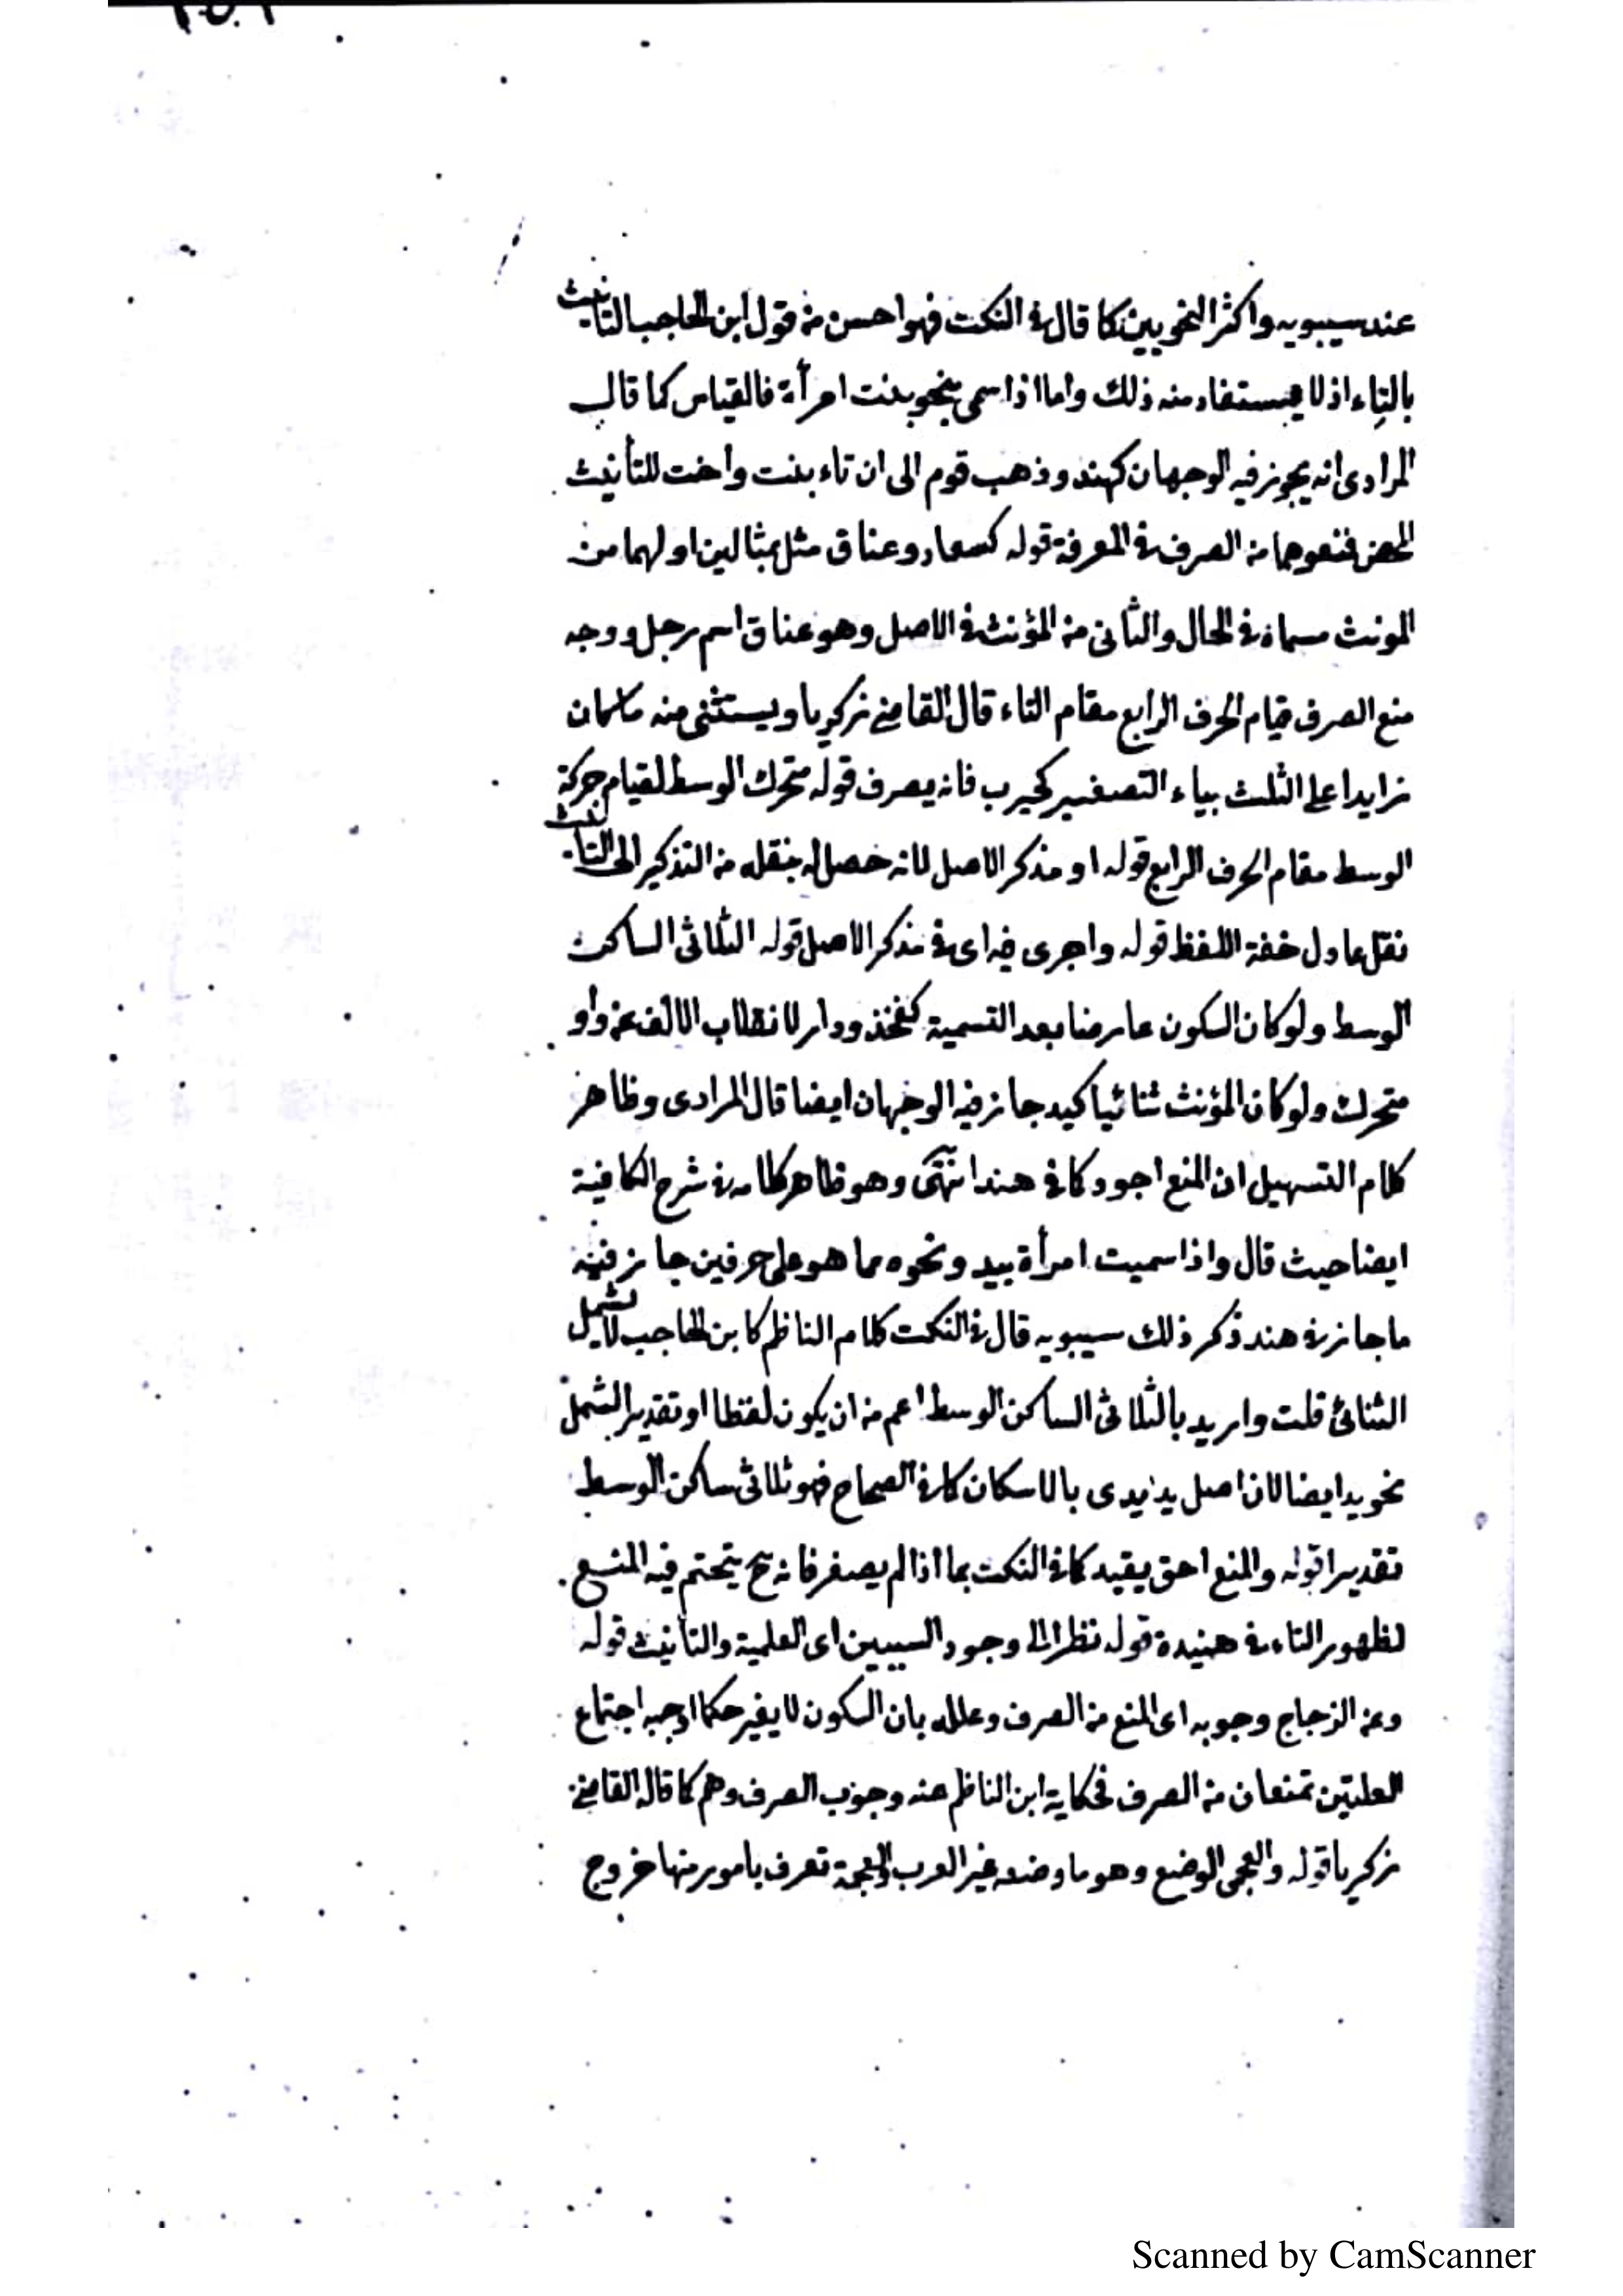 عند سيبويه واكثر النحويين كما قال في النكت فهو احسن من قول ابن الحاجب التانيث
بالتاء اذ لا يستفاد منه ذلك واما اذا سمى بنحو بنت امرأة فالقياس كما قال
المرادى انه يجوز فيه الوجهان كهند وذهب قوم الى ان تاء بنت واخت للتأنيث
المحض فمنعوهما من الصرف في المعرفة قوله كسعاد وعناق مثل بمثالين اولهما من
المونث مسماه في الحال والثانى من المؤنث في الاصل وهو عناق اسم رجل ووجه
منع الصرف قيام الحرف الرابع مقام التاء قال القاضي زكريا ويستثنى منه ما كان
زايدا على الثلث بياء التصغير كحريب فانه يصرف قوله متحرك الوسط لقيام حركة
الوسط مقام الحرف الرابع قوله او مذكر الاصل لانه حصل له بنقله من التذكير الى التانيث
ثقل عادل خفة اللفظ قوله واجرى فيه اى في مذكر الاصل قوله الثلاثى الساكن
الوسط ولو كان السكون عارضا بعد التسمية كفخذ ودار لانقلاب الالف عن واو
متحرك ولو كان المؤنث ثنائيا كيد جاز فيه الوجهان ايضا قال المرادى وظاهر
كلام التسهيل ان المنع اجود كما في هند انتهى وهو ظاهر كلامه في شرح الكافية
ايضا حيث قال واذا سميت امرأة بيد ونحوه مما هو على حرفين جاز فيه
ما جاز في هند ذكر ذلك سيبويه قال في النكت كلام الناظم كابن الحاجب لا يشمل
الثنائى قلت واريد بالثلاثى الساكن الوسط اعم من ان يكون لفظا او تقديرا لشمل
نحو يد ايضا لان اصل يد يدى بالاسكان كما في الصحاح فهو ثلاثى ساكن الوسط
تقديرا قوله والمنع احق يقيد كما في النكت بما اذا لم يصغر فانه ح يتحتم فيه المنع
لظهور التاء في هنيدة قوله نظرا الى وجود السببين اى العلمية والتأنيث قوله
وعن الزجاج وجوبه اى المنع من الصرف وعلله بان السكون لا يغير حكما اوجبه اجتماع
العلتين تمنعان من الصرف فحكاية ابن الناظم عنه وجوب الصرف وهم كما قاله القاضي
زكريا قوله والعجمى الوضع وهو ما وضعه غير العرب والعجمة تعرف بامور منها خروج
Scanned by CamScanner